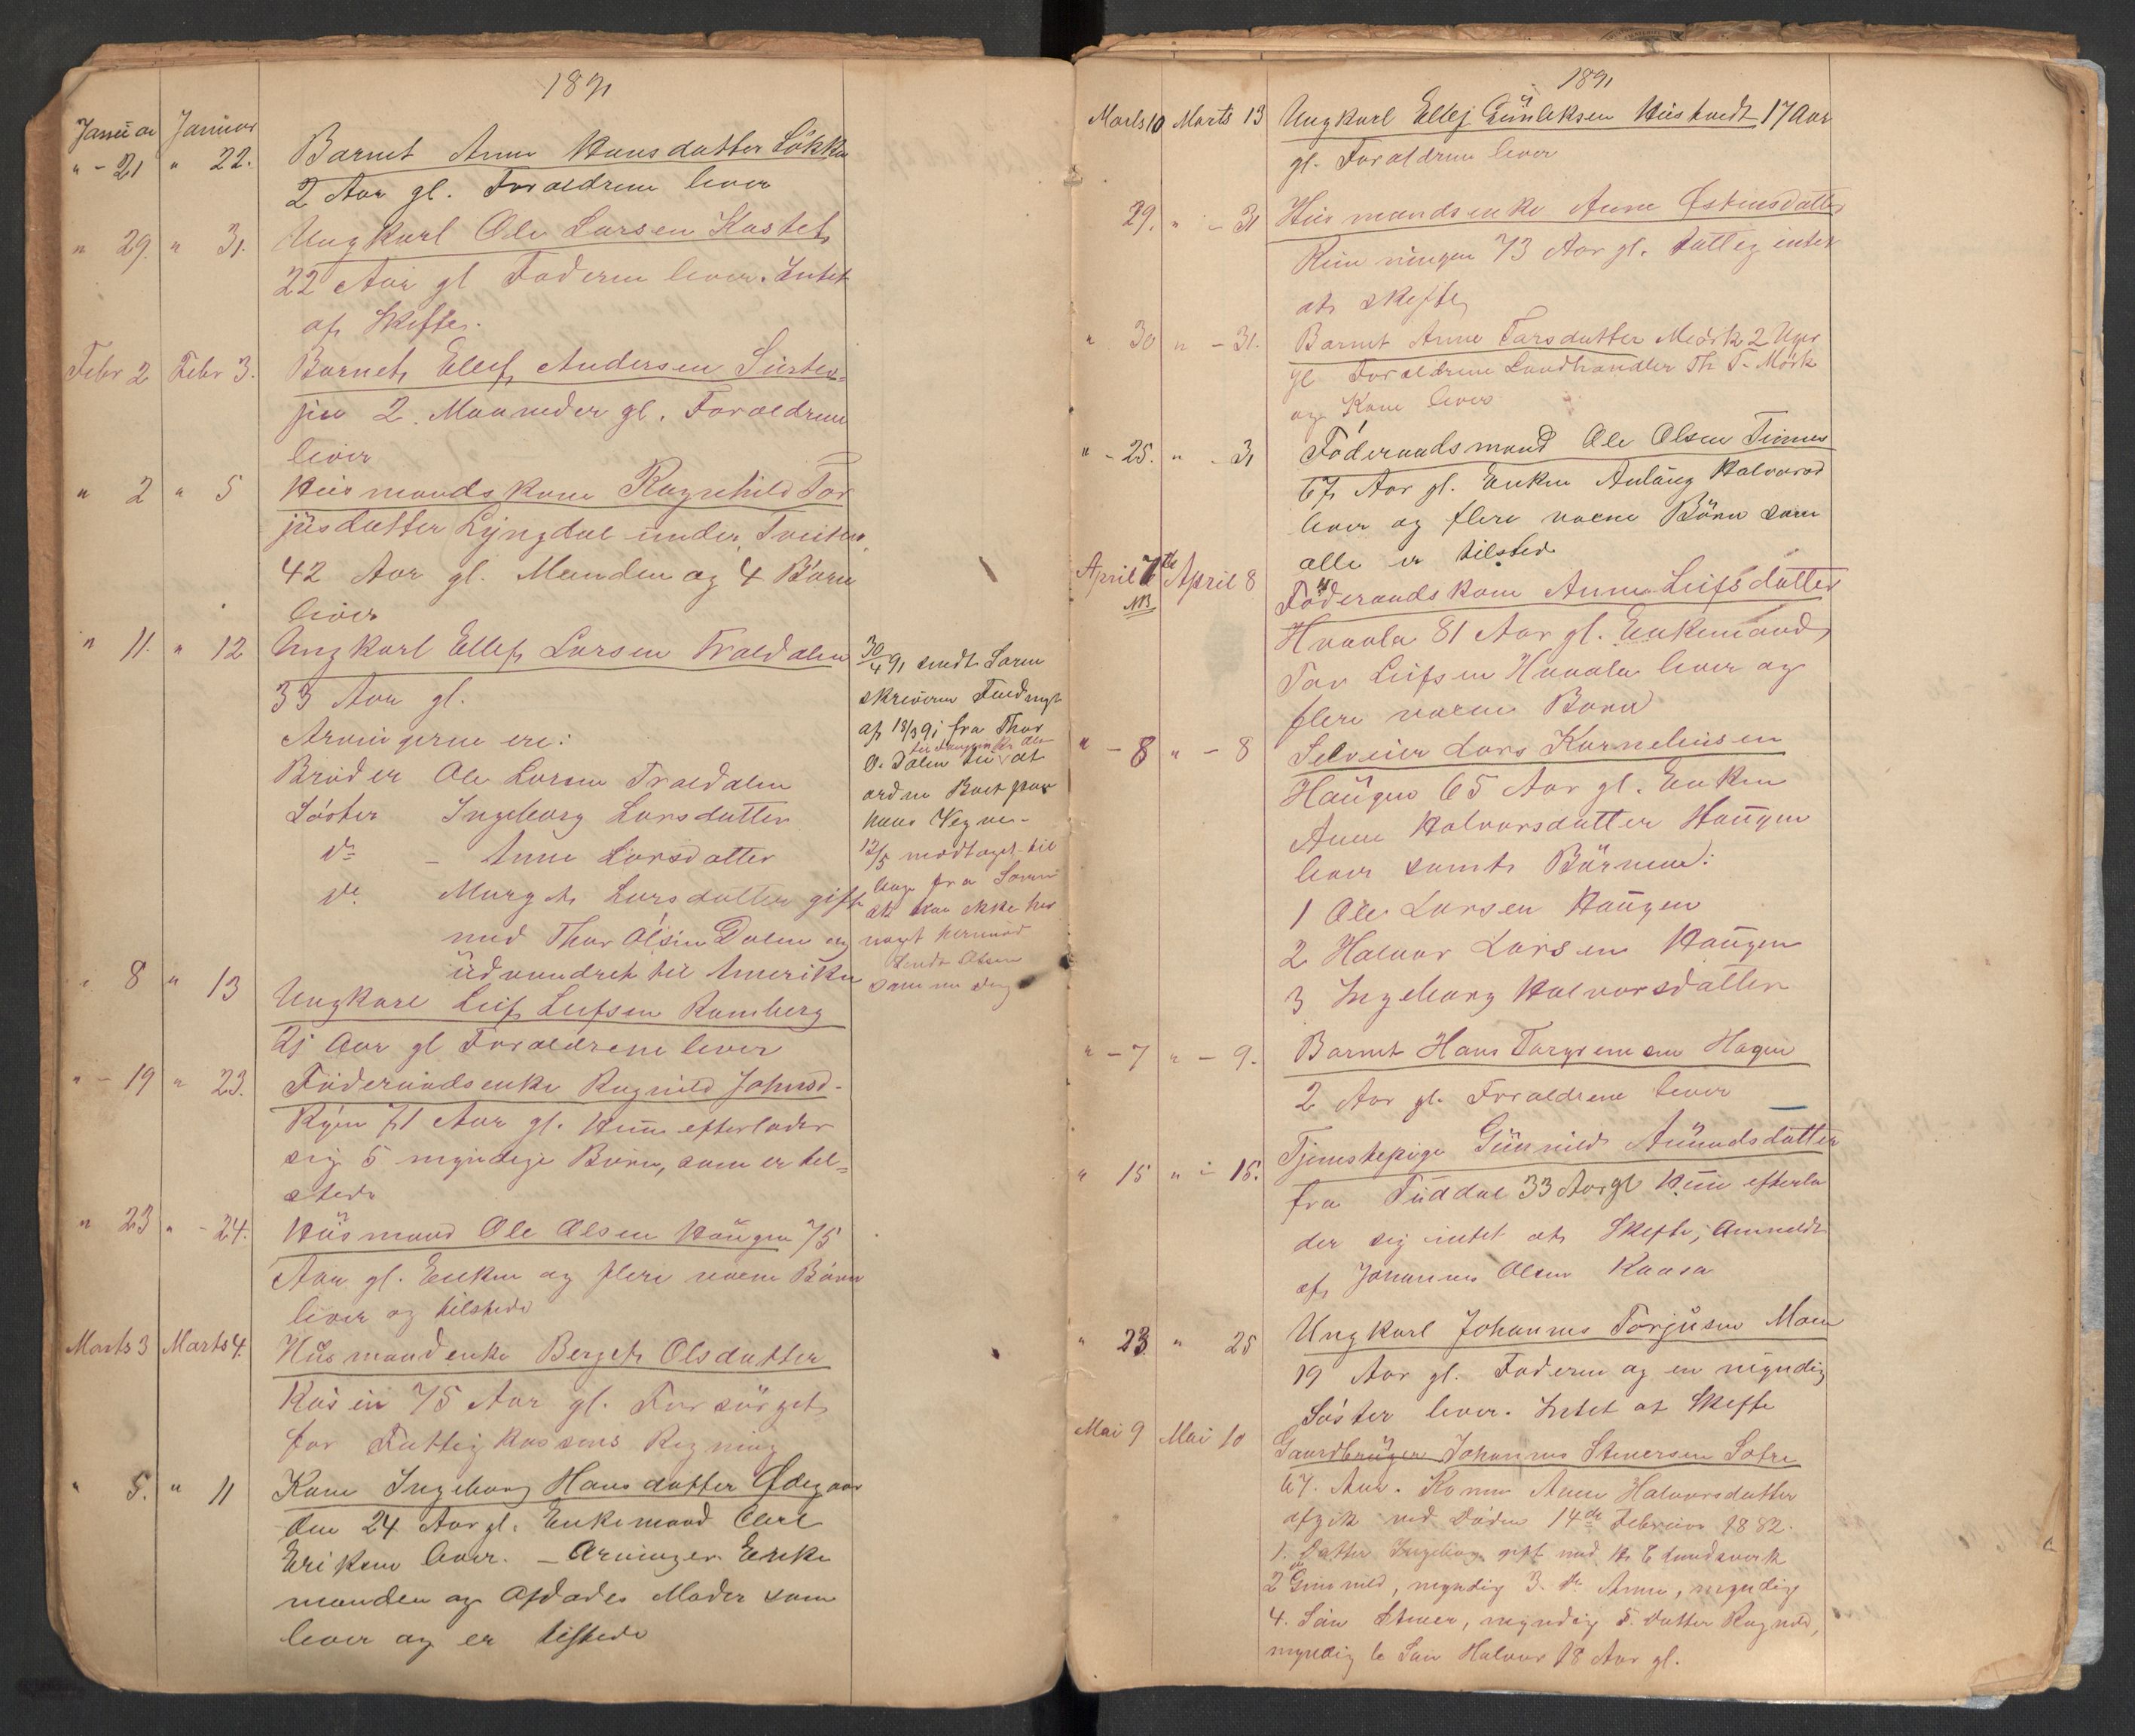 1891
Januar Januar
" - 21 " 22. Barnet Anne Hansdatter Lökka
2 Aar gl. Foraeldrene lever
" 29. " 31. Ungkarl Ole Larsen Kastet
22 Aar gl Faderen lever. Intet
at Skifte.
Febr 2 Febr 3. Barnet Ellef Andersen
2 Maaneder gl. Foraeldrene
lever
" 2 " 5 Husmandskone Ragnhild Tor
jusdatter Lyngdal under Tveiten
42 Aar gl. Manden og 4 Börn
lever
" 11. " 12 Ungkarl Ellef Larsen Traldalen
33 Aar gl.
Arvingerne ere:
Broder Ole Larsen Traldalen
Söster Ingeborg Larsdatter
do - Anne Larsdatter
do Margit Larsdatter gift
med Thor Olsen Dalen og
udvandret til Amerika
30/4 91 sendt Soren
skriveren
af 18/3 91 fra Thor
O. Dalen til at
ordne Boet paa
hans Vegne -
12/5 modtaget til
bage fra Soren
at han ikke har
noget hermed
sendt Olsen
samme Dag
" 8 " 13 Ungkarl Leif Leifsen Ramberg
21 Aar gl Foraeldrene lever
" - 19 " 23. Föderaadsenke Ragnild Johnsd.
71 Aar gl. Hun efterlader
sig 5 myndige Börn, som er til=
stede
" 23 " - 24. Husmand Ole Olsen Haugen 75
Aar gl. Enken og flere voxne Börn
lever og tilstede
Marts 3 Marts 4. Husmandenke Berget Olsdatter
75 Aar gl. Forsörget
for Fattigkassens Regning
" 5. " 11 Kone Ingeborg Hansdatter Ødegaar
den 24 Aar gl. Enkemand Carl
Eriksen lever. - Arvinger Enke
manden og Afdødes Moder som
lever og er tilstede
1891
Marts 10 Marts 13 Ungkarl Ellef Gunleksen 17 Aar
gl. Foraldrene lever
29. " - 31 Husmandsenke Anne Østensdatter
73 Aar gl. Fattig intet
at skifte
" 30 " - 31. Barnet Anne Tarsdatter Meörk 2 Uger
gl Foraeldrene Landhandler Th T. Mörk
og Kone lever
" - 25. " - 31 Föderaadsmand Ole Olsen Tinnes
67 Aar gl. Enken Anlaug Halvorsd
lever og flere voxne Börn som
alle er tilstede
April 7de April 8 Föderaadskone Anne Leifsdatter
NB
Hvaala 81 Aar gl. Enkemand
Tor Leifsen Hvaala lever og
flere voxne Barn
" - 8 " - 8 Selveier Lars Korneliusen
Haugen 65 Aar gl. Enken
Anne Halvorsdatter Haugen
lever samt Börnene:
1 Ole Larsen Haugen
2 Halvor Larsen Haugen
3 Ingeborg Halvorsdatter
" - 7 " - 9. Barnet Hans Torgrimsen Hagen
2 Aar gl. Foraeldrene lever
" 15 " - 15. Tjenestepige Gunnild Aamundsdatter
fra Tuddal 33 Aar gl Hun efterla
der sig intet at Skifte, Anmeldt
af Johannes Olsen Kaasa
" 23 " 25 Ungkarl Johannes Torjusen Moen
19 Aar gl. Faderen og en myndig
Söster lever. Intet at Skifte
Mai 9 Mai 10 Gaardbruger Johannes Stenersen Sotre
67. Aar. Konen Anne Halvorsdatter
afgik ved Döden 14de Februar 1882.
1. Datter Ingeborg gift med H. E Lundsvork
2 do Gunnild, myndig 3. do Anne, myndig
4. Sön Stener, myndig 5. Datter Ragnild,
myndig 6 Sön Halvor 18 Aar gl.